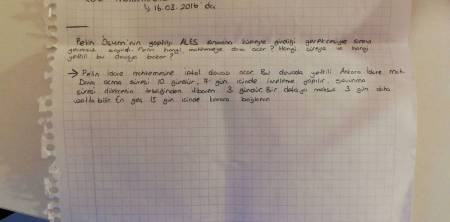 ↳ 16.03.2016 da
Pelin Özsem'nin yaptığı ALES sınavına süreye girdiği gerekçesiyle sınav
geçersiz sayıldı. Pelin hangi mahkemeye dava açar? Hangi süreye ve hangi
yetkili bu davaya bakar?
→ Pelin İdare mahkemesine iptal davası açar. Bu davada yetkili Ankara İdare mah.
Dava açma süresi 10 gündür. 7 gün içinde inceleme yapılır. Savunma
süresi dilekçenin tebliğinden itibaren 3 gündür. Bir defaya mahsus 3 gün daha
uzatılabilir. En geç 15 gün içinde karara bağlanır.